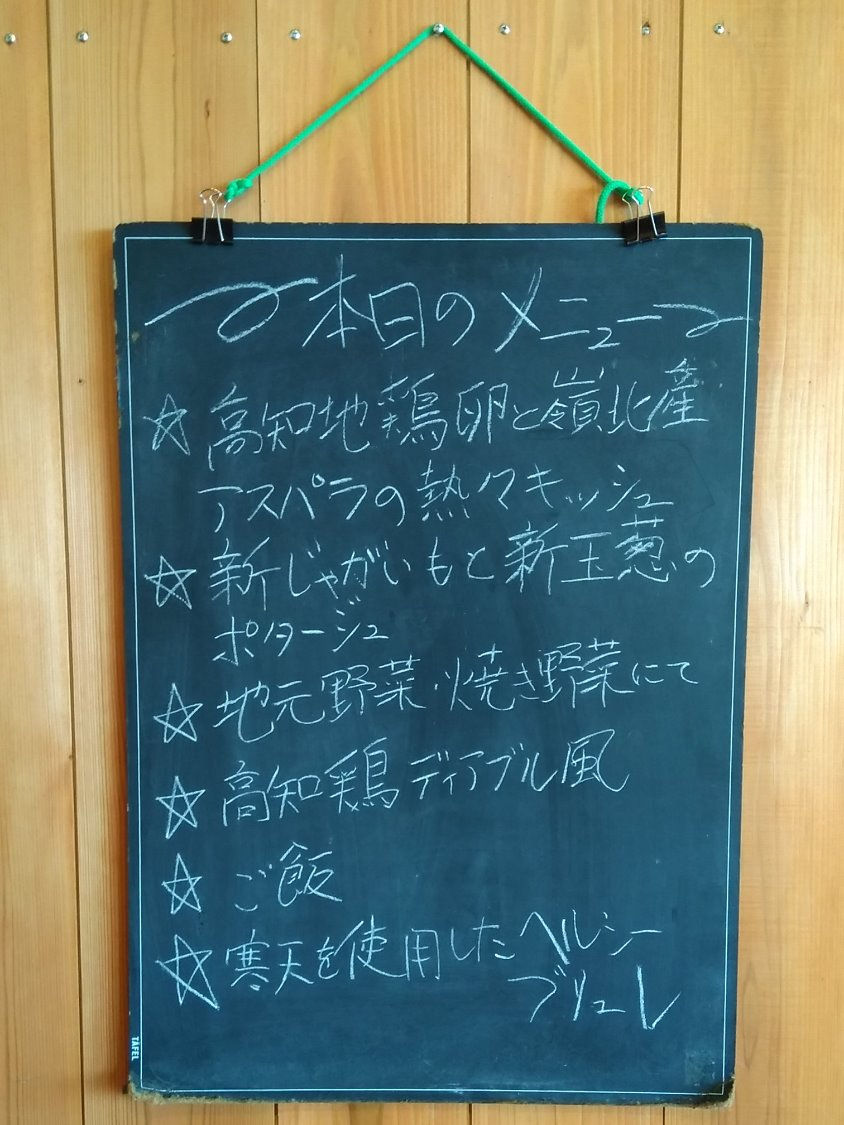 本日のメニュー
☆高知地鶏卵と嶺北産
アスパラの熱々キッシュ
☆新じゃがいもと新玉葱の
ポタージュ
☆地元野菜・焼き野菜にて
☆高知鶏ディアブル風
☆ご飯
☆寒天を使用したヘルシー
ブリュレ
TAFEL